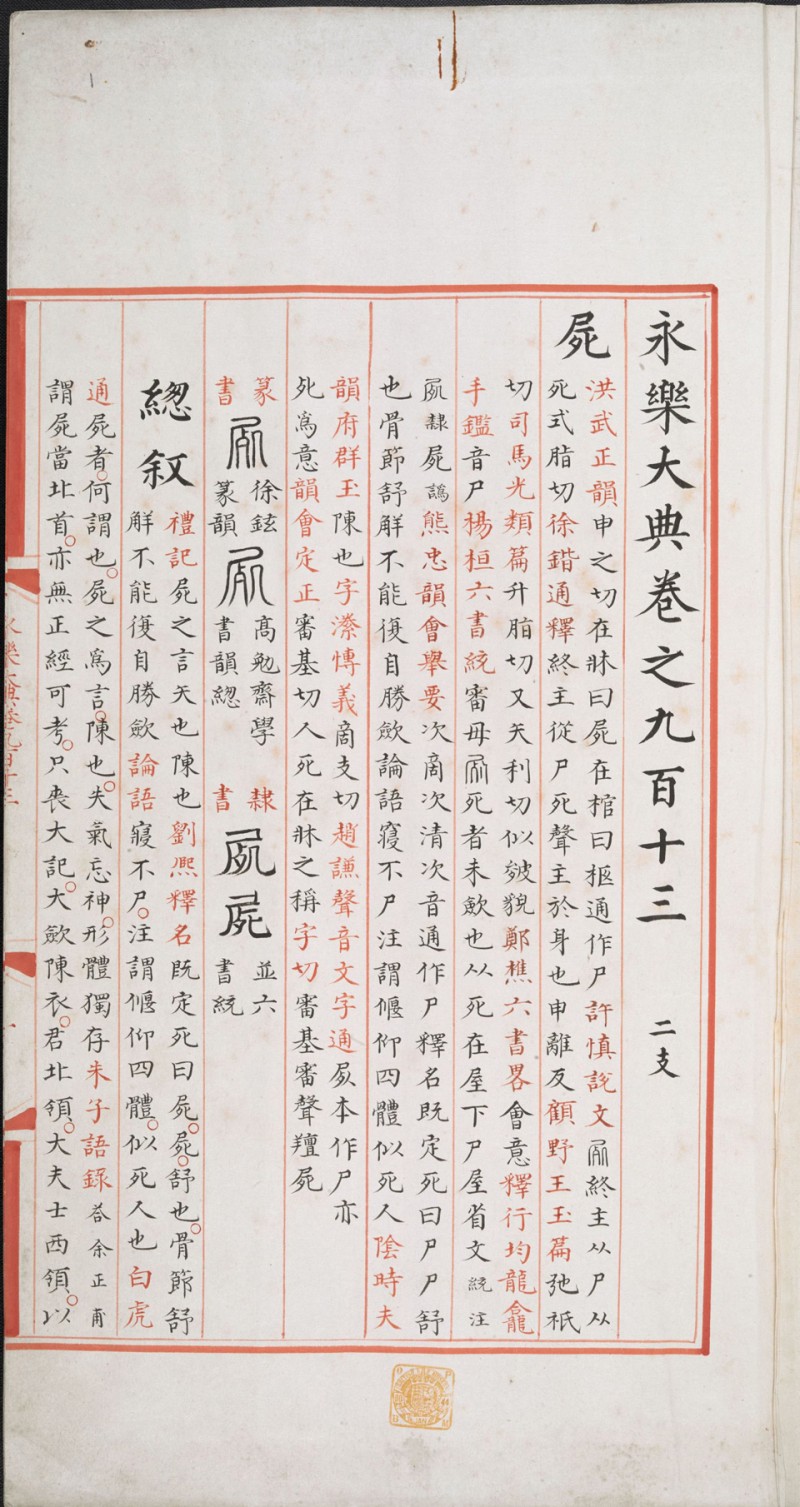 永樂大典卷之九百十三 二支
屍
洪武正韻申之切在牀曰屍在棺曰柩通作尸許慎說文屍終主从尸从
死式脂切徐鍇通釋終主從尸死聲主於身也申離反顧野王玉篇弛祇
切司馬光類篇升脂切又矢利切似皴貌鄭樵六書畧會意釋行均龍龕
手鑑音尸楊桓六書統審母屍死者未歛也从死在屋下尸屋省文統注
屍隸屍譌熊忠韻會舉要次商次清次音通作尸釋名既定死曰尸尸舒
也骨節舒解不能復自勝歛論語寢不尸注謂偃仰四體似死人陰時夫
韻府群玉陳也字潫愽義啇支切趙謙聲音文字通屍本作尸亦
死爲意韻會定正審基切人死在牀之稱字切審基審聲羶屍
篆書 屍 徐鉉篆韻 屍 高勉齋學書韻緫 隸書 屍 屍 並六書統
緫叙
禮記屍之言矢也陳也劉熈釋名既定死曰屍屍舒也骨節舒
解不能復自勝歛論語寢不尸注謂偃仰四體似死人也白虎
通屍者何謂也屍之爲言陳也失氣忘神形體獨存朱子語錄荅余正甫
謂屍當北首亦無正經可考只䘮大記大歛陳衣君北領大夫士西領以